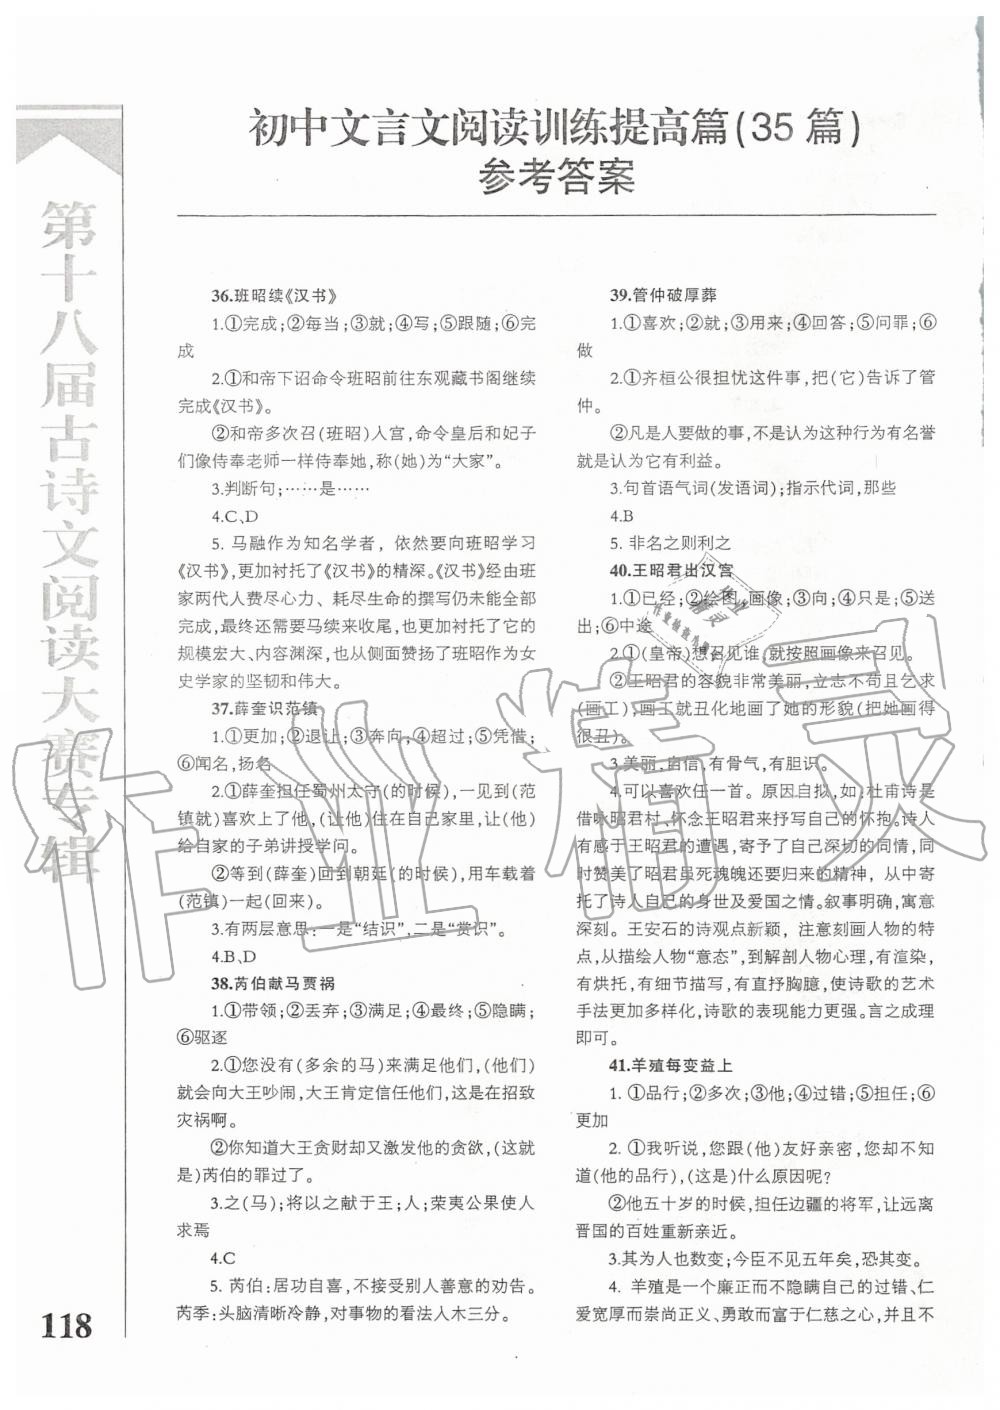 初中文言文阅读训练提高篇(35篇)
参考答案
第十八届古诗文阅读大赛专辑
36.班昭续《汉书》
1.①完成;②每当;③就;④写;⑤跟随;⑥完
成
2.①和帝下诏命令班昭前往东观藏书阁继续
完成《汉书》。
②和帝多次召(班昭)入宫,命令皇后和妃子
们像侍奉老师一样侍奉她,称(她)为“大家”。
3.判断句;……是……
4.C、D
5. 马融作为知名学者，依然要向班昭学习
《汉书》,更加衬托了《汉书》的精深。《汉书》经由班
家两代人费尽心力、耗尽生命的撰写仍未能全部
完成,最终还需要马续来收尾,也更加衬托了它的
规模宏大、内容渊深,也从侧面赞扬了班昭作为女
史学家的坚韧和伟大。
37.薛奎识范镇
1.①更加;②退让;③奔向;④超过;⑤凭借;
⑥闻名,扬名
2.①薛奎担任蜀州太守(的时候),一见到(范
镇就)喜欢上了他,(让他)住在自己家里,让(他)
给自家的子弟讲授学问。
②等到(薛奎)回到朝廷(的时候),用车载着
(范镇)一起(回来)。
3.有两层意思:一是“结识”,二是“赏识”。
4.B、D
38.芮伯献马贾祸
1.①带领;②丢弃;③满足;④最终;⑤隐瞒;
⑥驱逐
2.①您没有(多余的马)来满足他们,(他们)
就会向大王吵闹,大王肯定信任他们,这是在招致
灾祸啊。
②你知道大王贪财却又激发他的贪欲,(这就
是)芮伯的罪过了。
3.之(马);将以之献于王;人;荣夷公果使人
求焉
4.C
5. 芮伯:居功自喜,不接受别人善意的劝告。
芮季:头脑清晰冷静,对事物的看法入木三分。
39.管仲破厚葬
1.①喜欢;②就;③用来;④回答;⑤问罪;⑥
做
2.①齐桓公很担忧这件事,把(它)告诉了管
仲。
②凡是人要做的事,不是认为这种行为有名誉
就是认为它有利益。
3.句首语气词(发语词);指示代词,那些
4.B
5. 非名之则利之
40.王昭君出汉宫
1.①已经;②绘图,画像;③向;④只是;⑤送
出;⑥中途
2.①(皇帝)想召见谁(就按照画像来召见。
②王昭君的容貌非常美丽,立志不苟且乞求
(画工),画工就丑化地画了她的形貌(把她画得
很丑)。
3.美丽,自信,有骨气,有胆识。
4.可以喜欢任一首。原因自拟,如,杜甫诗是
借咏昭君村、怀念王昭君来抒写自己的怀抱。诗人
有感于王昭君的遭遇,寄予了自己深切的同情,同
时赞美了昭君虽死魂魄还要归来的精神，从中寄
托了诗人自己的身世及爱国之情。叙事明确,寓意
深刻。王安石的诗观点新颖，注意刻画人物的特
点,从描绘人物“意态”,到解剖人物心理,有渲染,
有烘托,有细节描写,有直抒胸臆,使诗歌的艺术
手法更加多样化,诗歌的表现能力更强。言之成理
即可。
41.羊殖每变益上
1. ①品行;②多次;③他;④过错;⑤担任;⑥
更加
2. ①我听说,您跟(他)友好亲密,您却不知
道(他的品行),(这是)什么原因呢?
②他五十岁的时候,担任边疆的将军,让远离
晋国的百姓重新亲近。
3.其为人也数变;今臣不见五年矣,恐其变。
4. 羊殖是一个廉正而不隐瞒自己的过错、仁
爱宽厚而崇尚正义、勇敢而富于仁慈之心,并且不
118
作业精灵